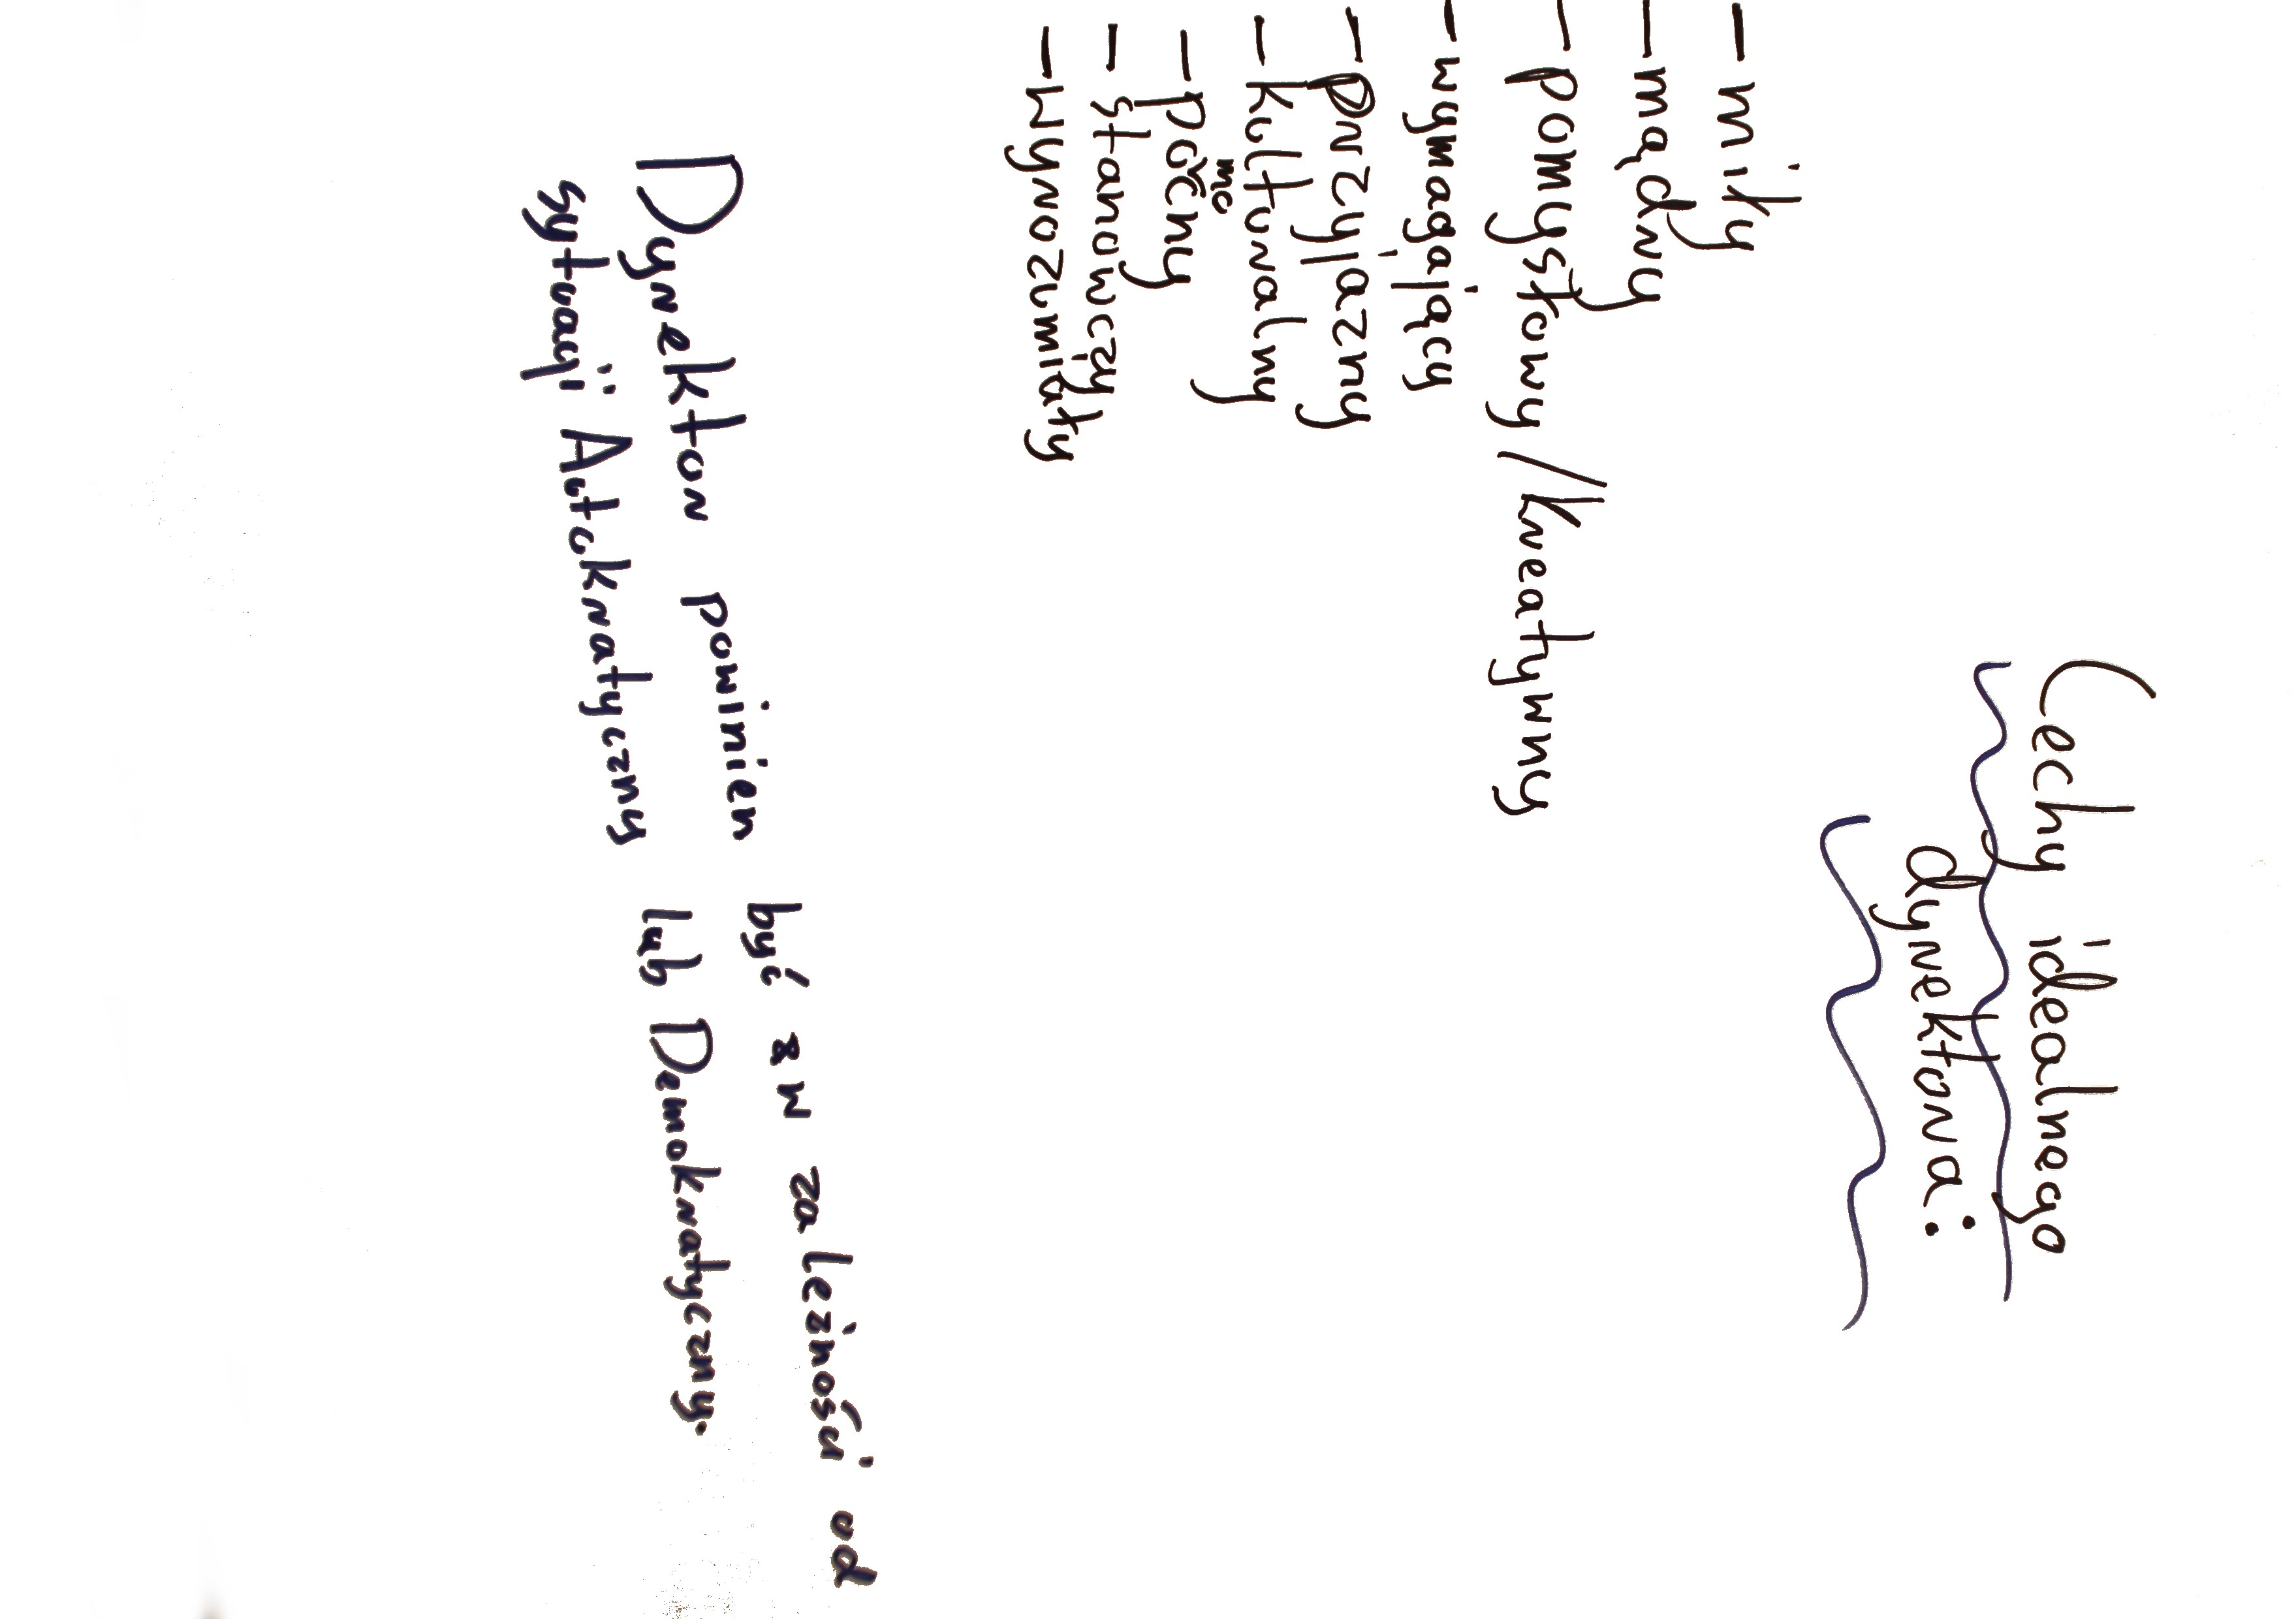 Cechy idealnego
dyrektora:
- miły
- mądry
- pomysłowy / kreatywny
- wymagający
- przyjazny
- kulturalny
- pomocny
- stanowczy
- wyrozumiały
Dyrektor powinien być w zależności od
sytuacji Autokratyczny lub Demokratyczny.